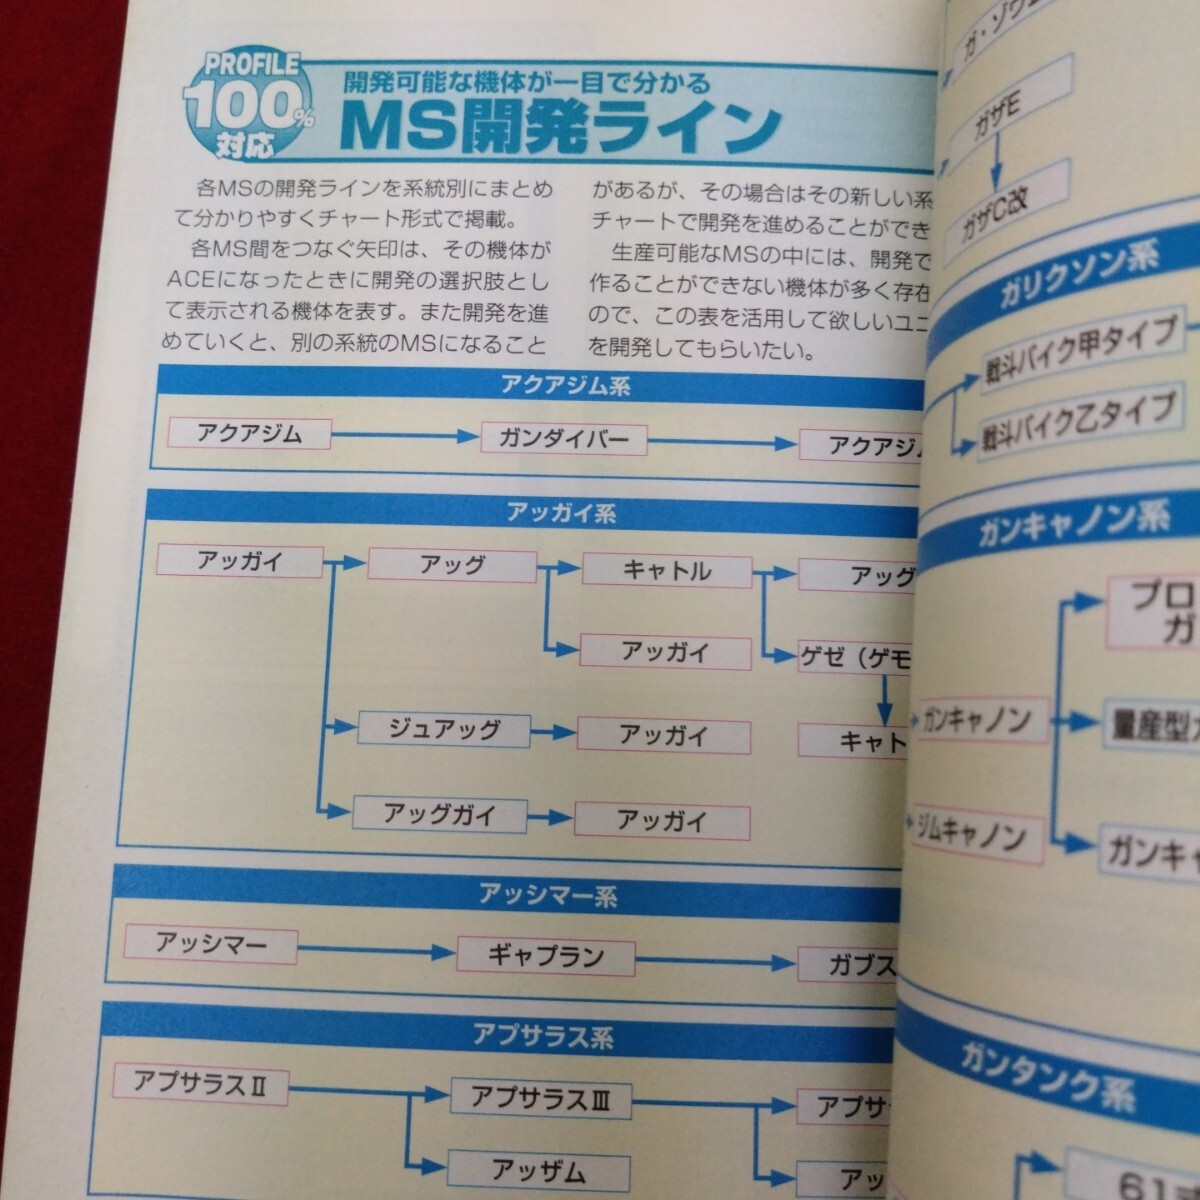 PROFILE
100%
対応
開発可能な機体が一目で分かる
MS開発ライン
各MSの開発ラインを系統別にまとめ
て分かりやすくチャート形式で掲載。
各MS間をつなぐ矢印は、その機体が
ACEになったときに開発の選択肢とし
て表示される機体を表す。また開発を進
めていくと、別の系統のMSになること
があるが、その場合はその新しい系
チャートで開発を進めることができ
生産可能なMSの中には、開発で
作ることができない機体が多く存在
ので、この表を活用して欲しいユニ
を開発してもらいたい。
アクアジム系
アクアジム
ガンダイバー
アクアジ
アッガイ系
アッガイ
アッグ
キャトル
アッグ
アッガイ
ゲゼ（ゲモ
ジュアッグ
アッガイ
キャト
アッグガイ
アッガイ
アッシマー系
アッシマー
ギャプラン
ガブス
アプサラス系
アプサラスⅡ
アプサラスⅢ
アプサ
アッザム
アッ
ガ・ゾウム
ガザE
ガザC改
ガリクソン系
戦斗バイク甲タイプ
戦斗バイク乙タイプ
ガンキャノン系
プロ
ガ
ガンキャノン
量産型
ジムキャノン
ガンキャ
ガンタンク系
61